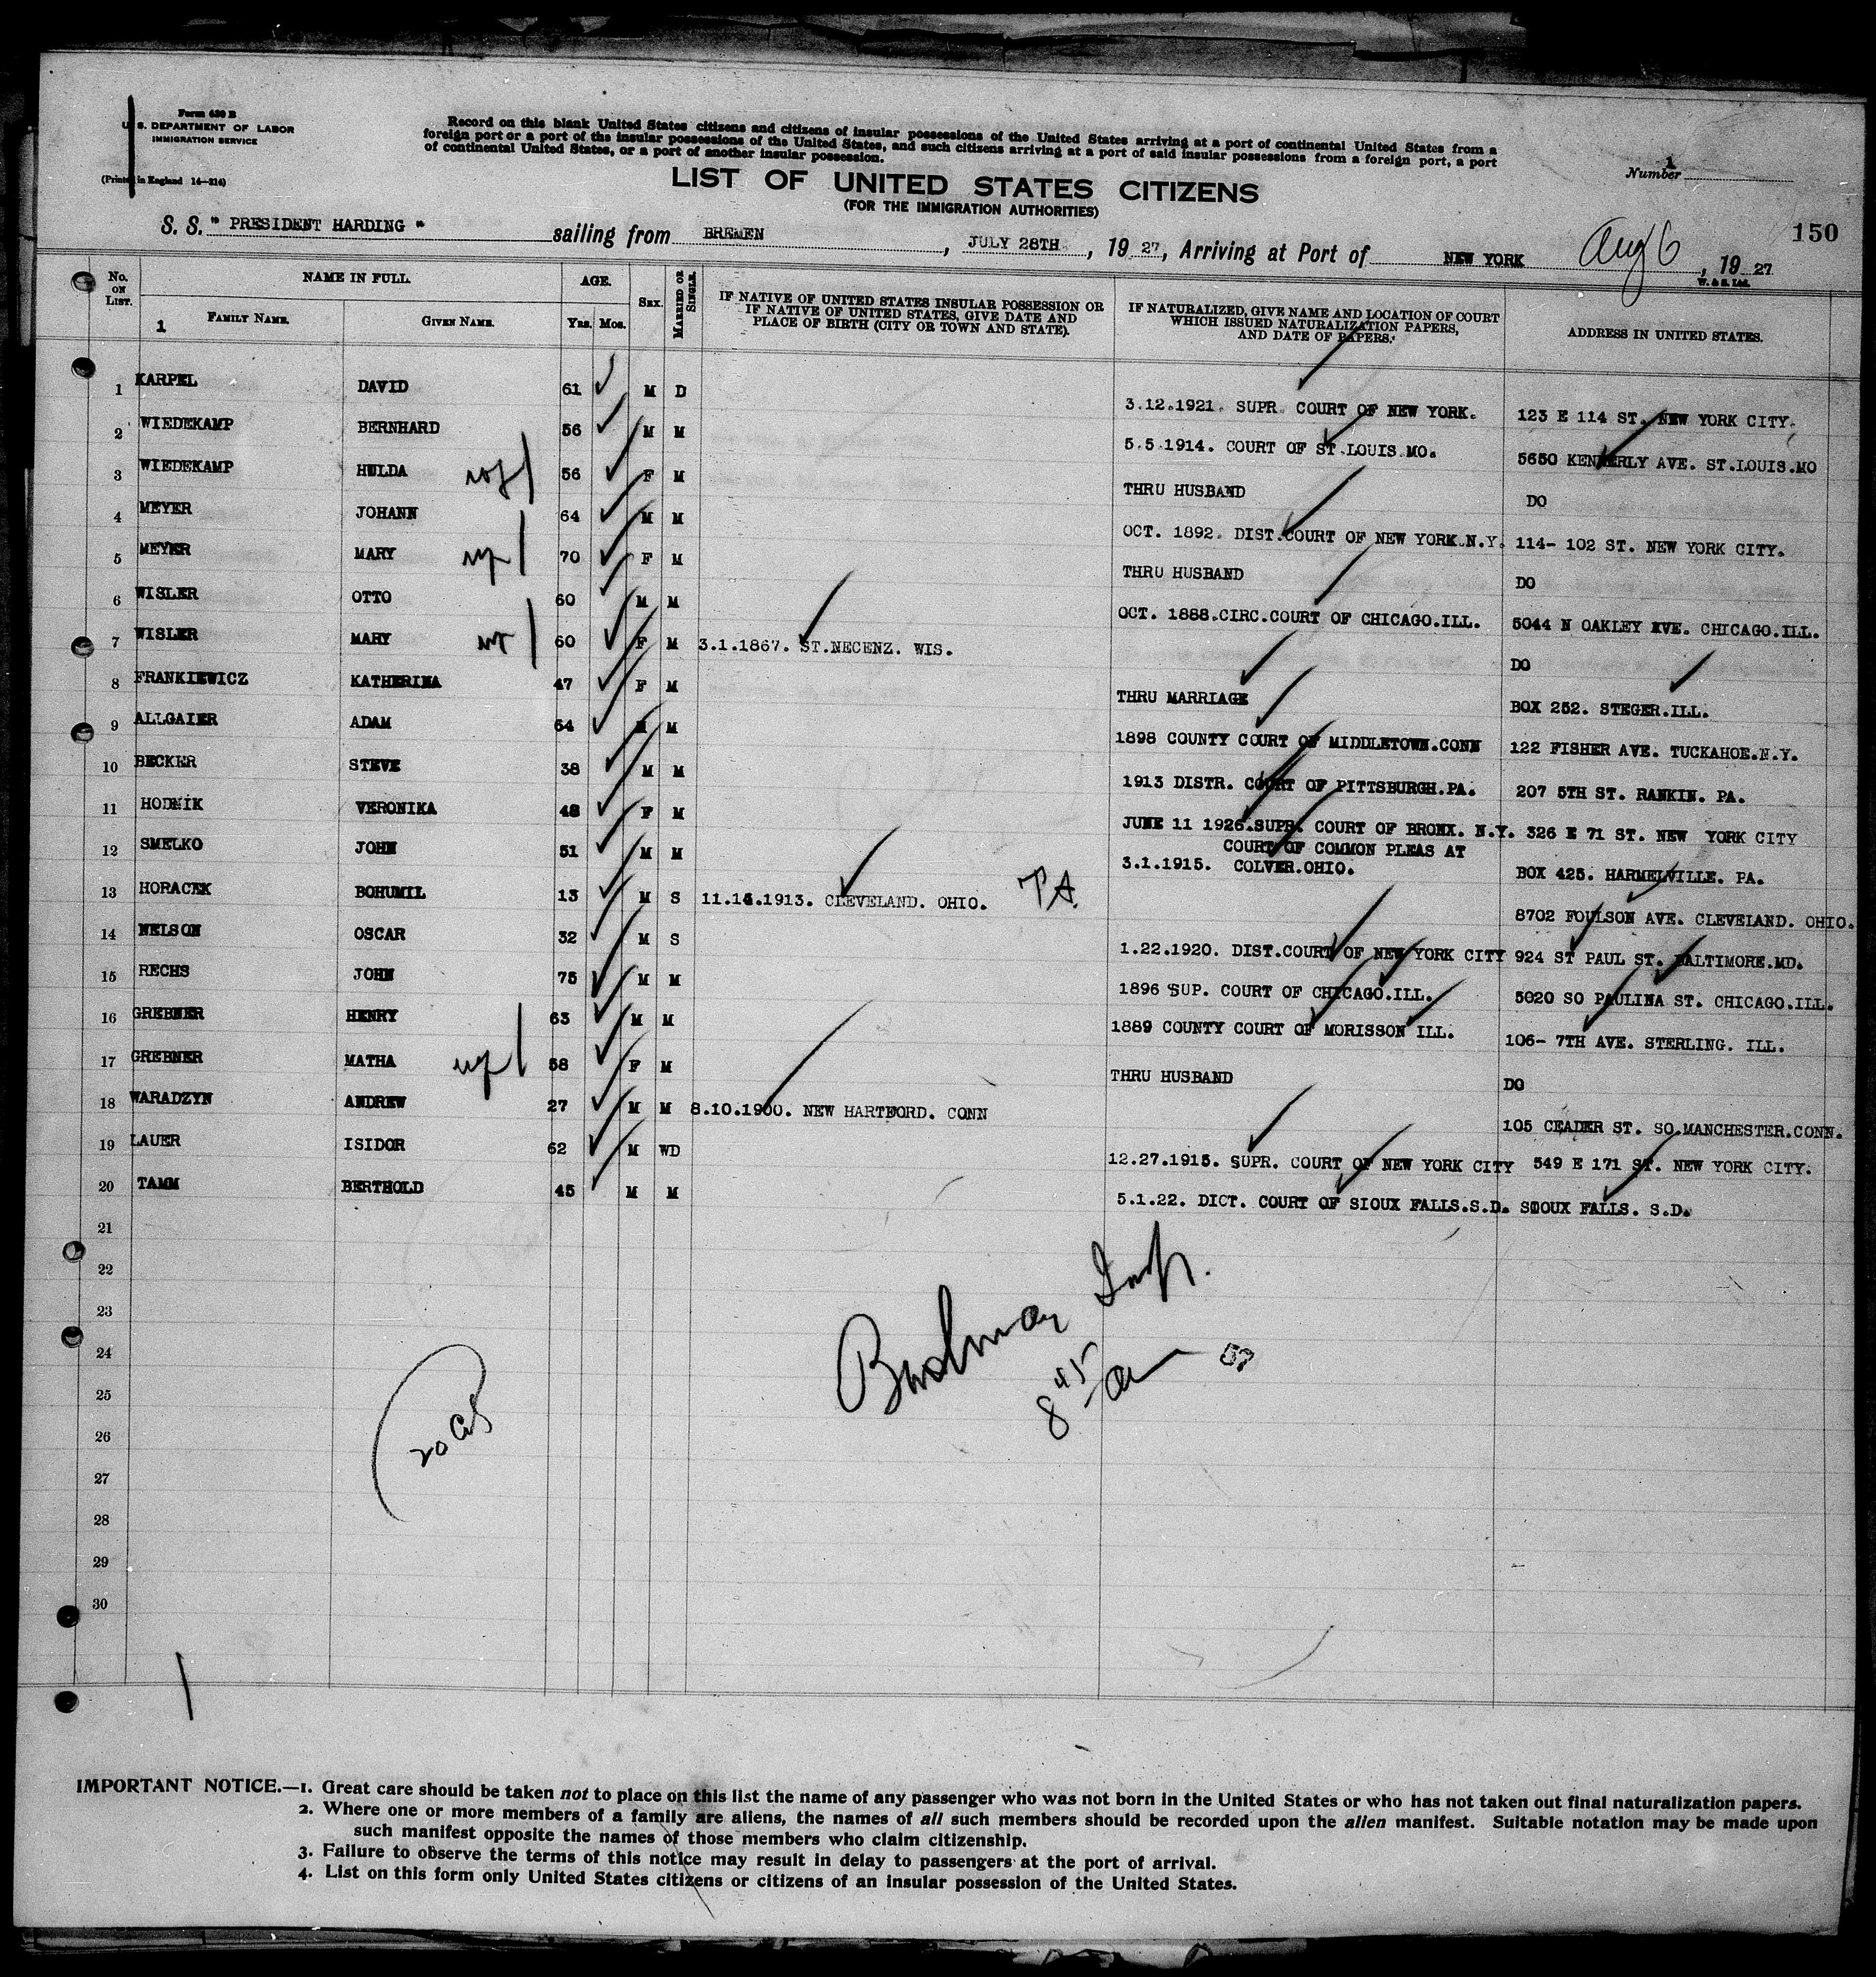 Form 630 B
U. S. DEPARTMENT OF LABOR
IMMIGRATION SERVICE
(Printed in England 14-214)
Record on this blank United States citizens and citizens of insular possessions of the United States arriving at a port of continental United States from a
foreign port or a port of the insular possessions of the United States, and such citizens arriving at a port of said insular possessions from a foreign port, a port
of continental United States, or a port of another insular possession.
Number 1
LIST OF UNITED STATES CITIZENS
(FOR THE IMMIGRATION AUTHORITIES)
150
S. S. " PRESIDENT HARDING " sailing from BREMEN, JULY 28TH, 19 27, Arriving at Port of NEW YORK Aug 6, 19 27
W. & S. Ltd.
No. ON LIST. NAME IN FULL AGE. SEX. MARRIED OR SINGLE. IF NATIVE OF UNITED STATES INSULAR POSSESSION OR IF NATIVE OF UNITED STATES, GIVE DATE AND PLACE OF BIRTH (CITY OR TOWN AND STATE). IF NATURALIZED, GIVE NAME AND LOCATION OF COURT WHICH ISSUED NATURALIZATION PAPERS, AND DATE OF PAPERS. ADDRESS IN UNITED STATES.
1 FAMILY NAME. GIVEN NAME. Yrs. Mos.
1 KARPEL DAVID 61 M D 3.12.1921. SUPR. COURT OF NEW YORK. 123 E 114 ST. NEW YORK CITY.
2 WIEDEKAMP BERNHARD 56 M M 5.5.1914. COURT OF ST.LOUIS.MO. 5650 KENNERLY AVE. ST.LOUIS.MO
3 WIEDEKAMP HULDA 56 F M THRU HUSBAND DO
4 MEYER JOHANN 64 M M OCT. 1892. DIST.COURT OF NEW YORK.N.Y. 114- 102 ST. NEW YORK CITY.
5 MEYER MARY 70 F M THRU HUSBAND DO
6 WISLER OTTO 60 M M OCT. 1888.CIRC.COURT OF CHICAGO.ILL. 5044 N OAKLEY AVE. CHICAGO.ILL.
7 WISLER MARY 60 F M 3.1.1867. ST.NECENZ. WIS. DO
8 FRANKIEWICZ KATHERINA 47 F M THRU MARRIAGE BOX 252. STEGER.ILL.
9 ALLGAIER ADAM 64 M M 1898 COUNTY COURT OF MIDDLETOWN.CONN 122 FISHER AVE. TUCKAHOE.N.Y.
10 BECKER STEVE 38 M M 1913 DISTR. COURT OF PITTSBURGH.PA. 207 5TH ST. RANKIN. PA.
11 HODNIK VERONIKA 48 F M JUNE 11 1926.SUPR. COURT OF BRONX. N.Y. 326 E 71 ST. NEW YORK CITY
12 SMELKO JOHN 51 M M 3.1.1915. COURT OF COMMON PLEAS AT COLVER.OHIO. BOX 425. HARMELVILLE. PA.
13 HORACEK BOHUMIL 13 M S 11.15.1913. CLEVELAND. OHIO. 8702 FOULSON AVE. CLEVELAND. OHIO.
14 NELSON OSCAR 32 M S 1.22.1920. DIST.COURT OF NEW YORK CITY 924 ST PAUL ST. BALTIMORE.MD.
15 RECHS JOHN 75 M M 1896 SUP. COURT OF CHICAGO.ILL. 5020 SO PAULINA ST. CHICAGO.ILL.
16 GREBNER HENRY 63 M M 1889 COUNTY COURT OF MORISSON ILL. 106- 7TH AVE. STERLING. ILL.
17 GREBNER MATHA 58 F M THRU HUSBAND DO
18 WARADZYN ANDREW 27 M M 8.10.1900. NEW HARTFORD. CONN 105 CEADER ST. SO.MANCHESTER.CONN.
19 LAUER ISIDOR 62 M WD 12.27.1915. SUPR. COURT OF NEW YORK CITY 549 E 171 ST. NEW YORK CITY.
20 TAMM BERTHOLD 45 M M 5.1.22. DICT. COURT OF SIOUX FALLS.S.D. SIOUX FALLS. S.D.
21
22
23
24
25
26
27
28
29
30
8 45 a
IMPORTANT NOTICE.—1. Great care should be taken not to place on this list the name of any passenger who was not born in the United States or who has not taken out final naturalization papers.
2. Where one or more members of a family are aliens, the names of all such members should be recorded upon the alien manifest. Suitable notation may be made upon
such manifest opposite the names of those members who claim citizenship.
3. Failure to observe the terms of this notice may result in delay to passengers at the port of arrival.
4. List on this form only United States citizens or citizens of an insular possession of the United States.